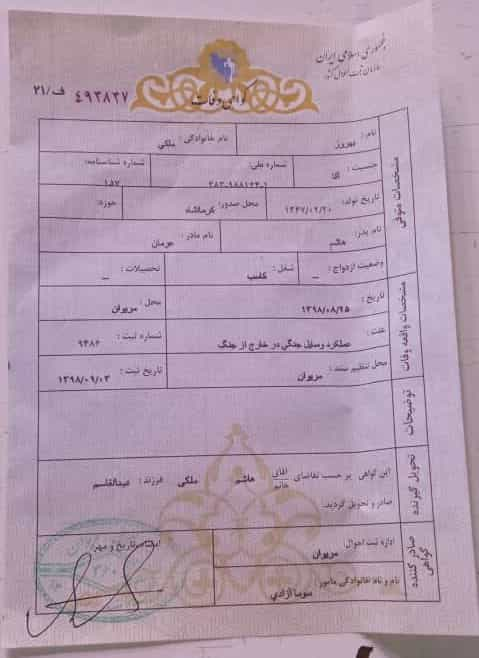 جمهوری اسلامی ایران
سازمان ثبت احوال کشور
گواهی وفات
۴۹۳۸۲۷ ف/۳۱
مشخصات متوفی
نام: بهروز نام خانوادگی: ملکی
جنسیت: آقا شماره ملی: شماره شناسنامه: ۱۵۷
تاریخ تولد: ۱۳۴۷/۰۲/۲۰ محل صدور: کرمانشاه حوزه:
نام پدر: هاشم نام مادر:
وضعیت ازدواج: _ شغل: کاسب تحصیلات: _
مشخصات واقعه وفات
تاریخ: ۱۳۹۸/۰۸/۲۵ محل: مریوان
علت: عملکرد وسایل جنگی در خارج از جنگ شماره ثبت: ۹۴۸۶
محل تنظیم سند: مریوان تاریخ ثبت: ۱۳۹۸/۰۹/۰۳
توضیحات
تحویل گیرنده
این گواهی بر حسب تقاضای آقای/خانم هاشم ملکی فرزند: عبدالقاسم
صادر و تحویل گردید.
صادر کننده گواهی
اداره ثبت احوال مریوان امضاء، تاریخ و مهر:
نام و نام خانوادگی مامور: سوما آزادی